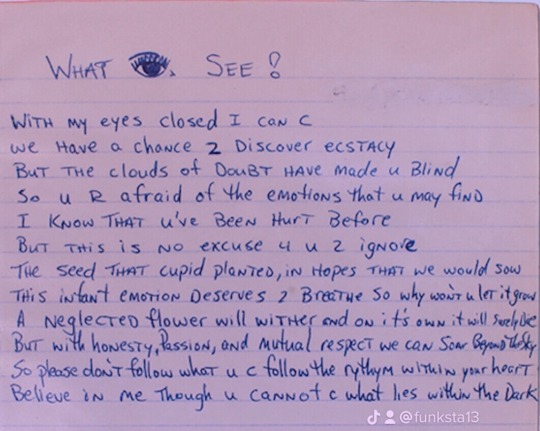 WHAT 👁. SEE?
WITH my eyes closed I can C
we Have a chance 2 Discover ecstacy
But The clouds of Doubt Have made u Blind
So u R afraid of the emotions that u may find
I Know THAT u've Been Hurt Before
But THis is no excuse 4 u 2 ignore
The seed THAT cupid planted, in Hopes THAT we would sow
THis infant emotion Deserves 2 Breathe So why won't u let it grow
A neglected flower will wither and on it's own it will surely Die
But with honesty, Passion, and mutual respect we can Soar Beyond the Sky
So please don't follow what u c follow the rythym within your heart
Believe in me Though u cannot c what lies within the Dark
@funksta13